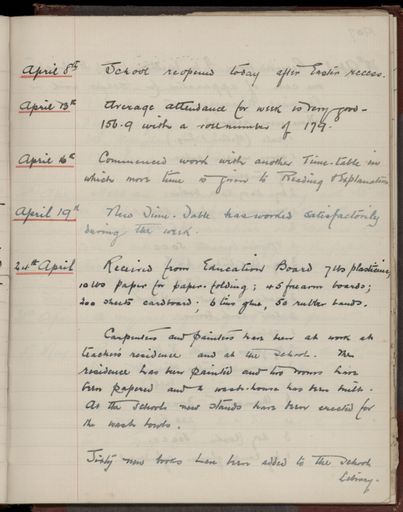 April 8th School reopened today after Easter recess.
April 13th Average attendance for week is very good -
156.9 with a roll number of 179.
April 16th Commenced work with another Time-table in
which more time is given to Reading & Explanation
April 19th New Time-Table has worked satisfactorily
during the week.
24th April Received from Education Board 7 lbs plasticine,
10 lbs paper for paper-folding; 45 boards;
200 sheets cardboard. 6 tins glue, 50 rubber bands.
Carpenters and painters have been at work at
teacher's residence and at the school. The
residence has been painted and two rooms have
been papered and a wash-house has been built.
At the school new stands have been erected for
the wash bowls.
Sixty new books have been added to the School
Library.